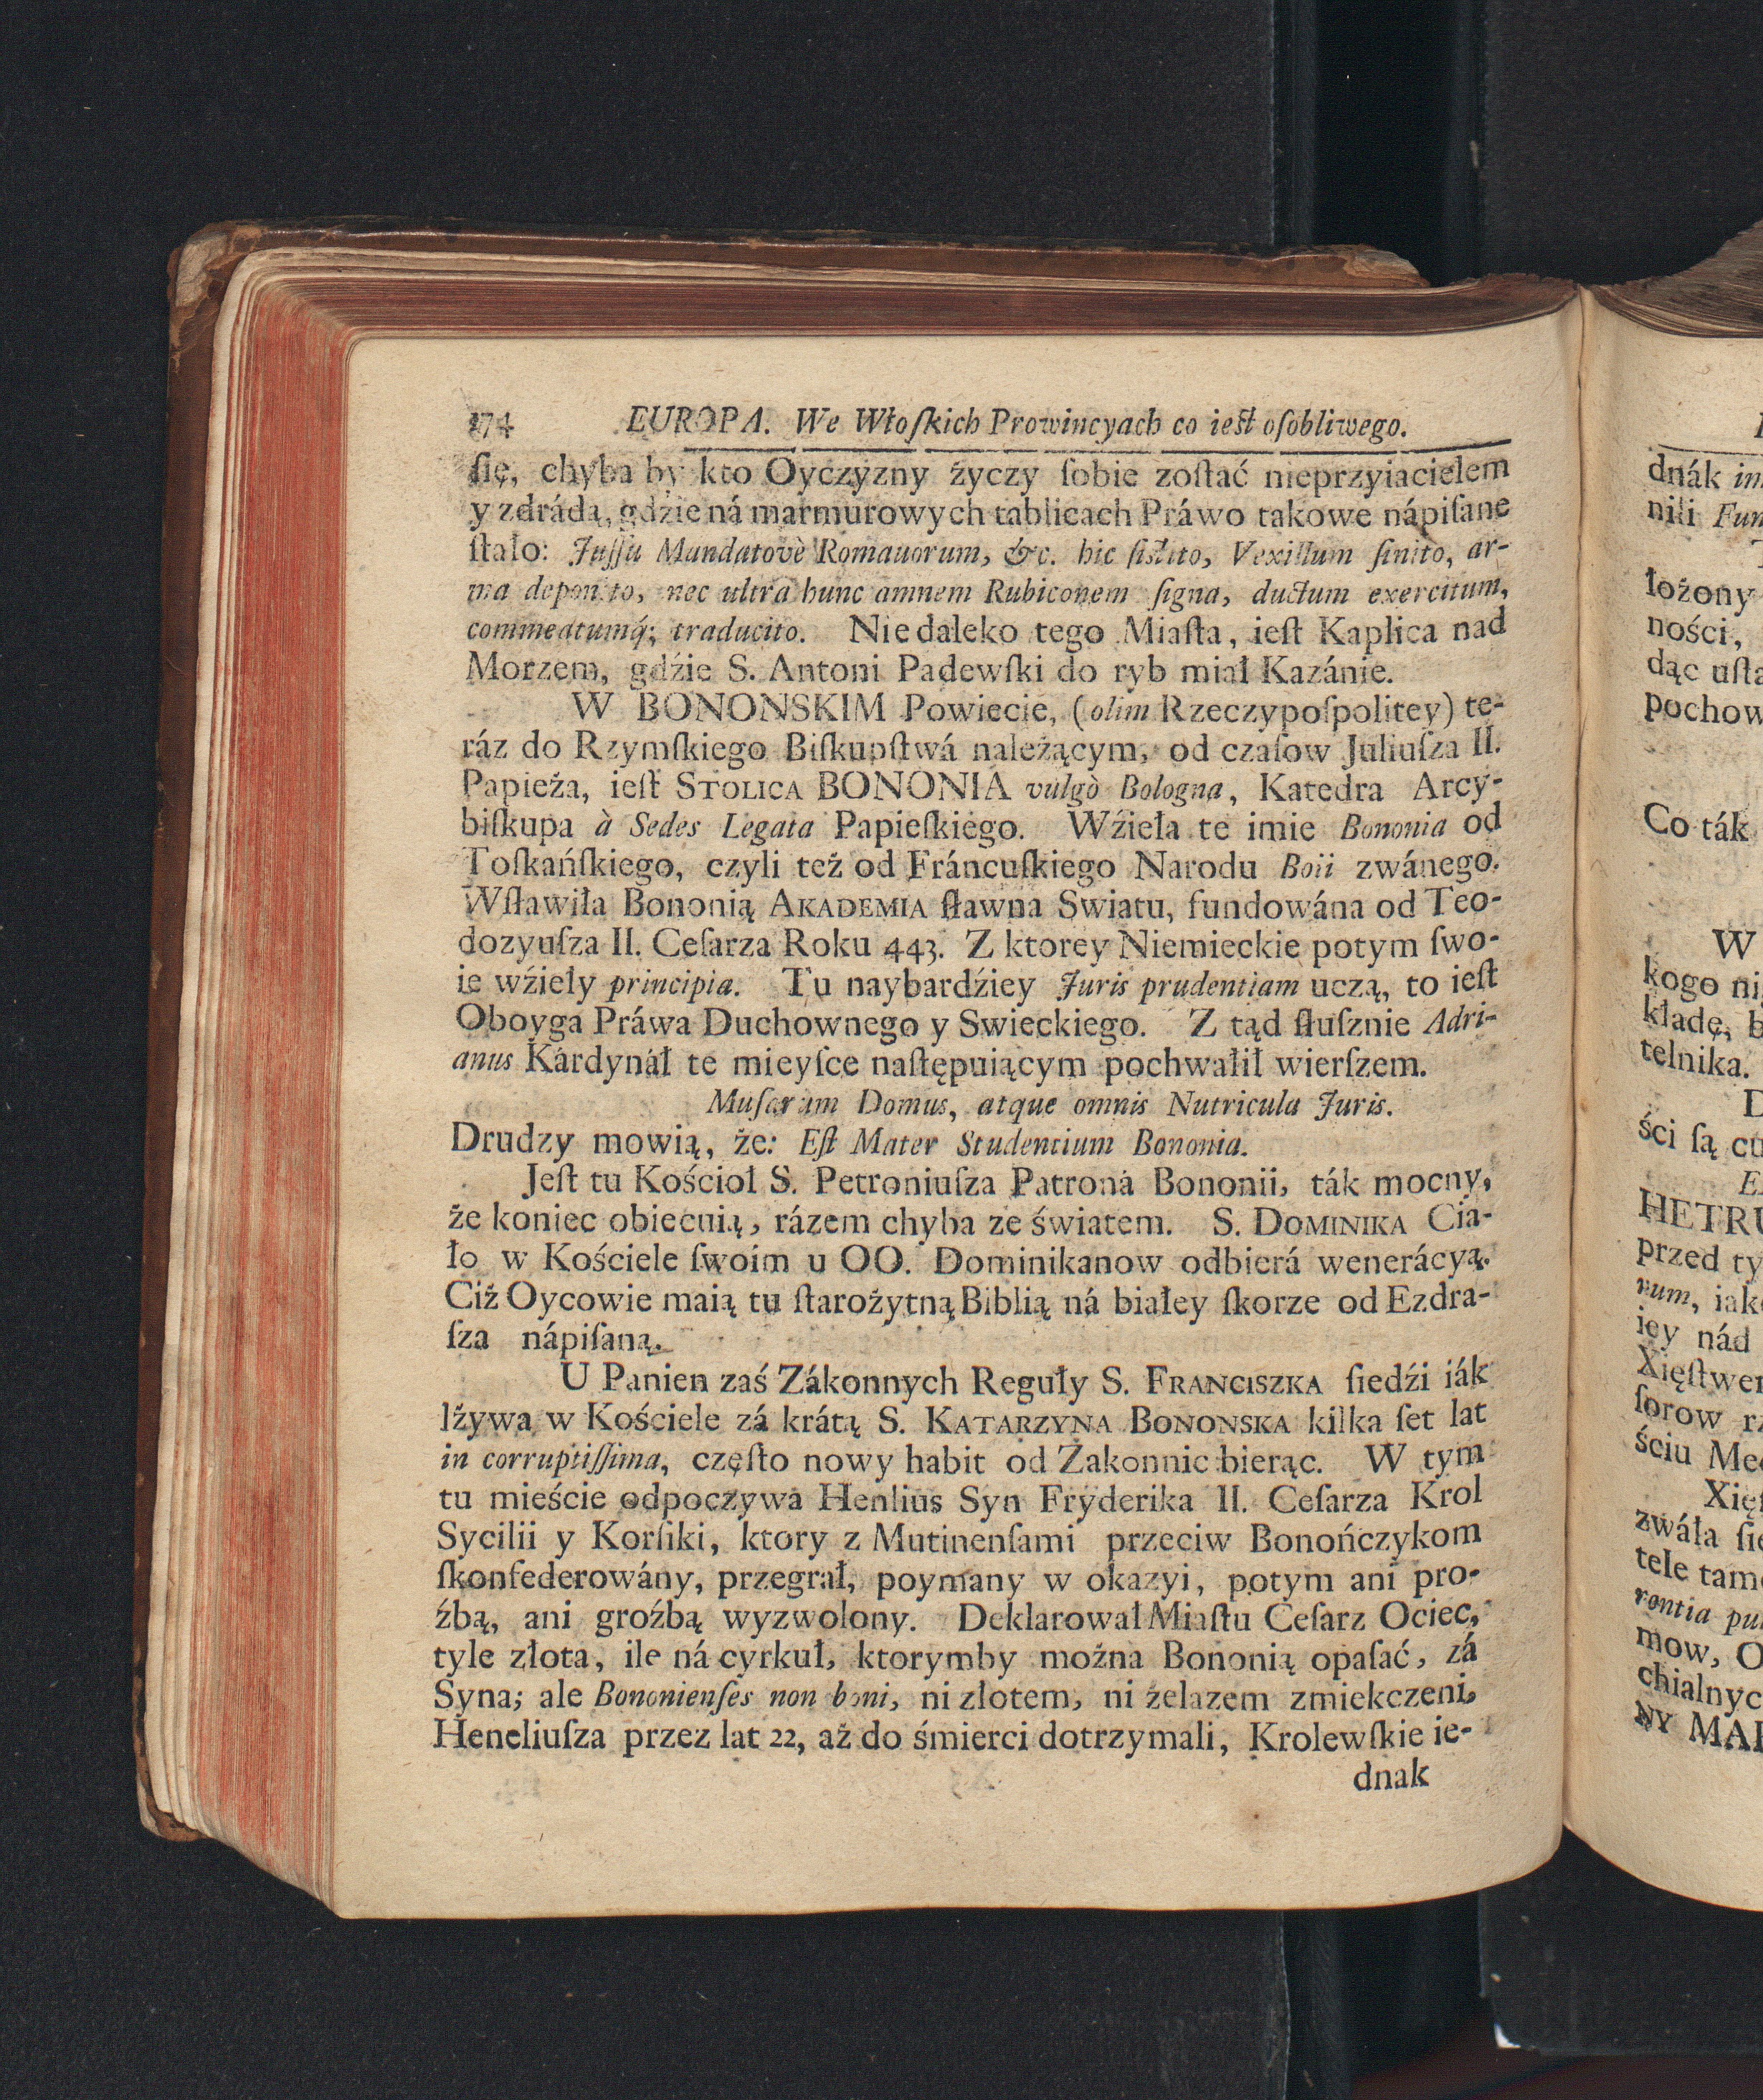 174 EUROPA. We Włoſkich Prowincyach co ieſt oſobliwego.
ſię, chyba by kto Oyczyzny życzy ſobie zoſtać nieprzyiacielem
y zdrádą, gdzie ná marmurowych tablicach Práwo takowe nápiſane
ſtało: Juſſu Mandatovè Romauorum, &c. hic ſiſtito, Vexillum ſinito, ar-
ma deponito, nec ultra hunc amnem Rubiconem ſigna, ductum exercitum,
commeatumq́; traducito. Niedaleko tego Miaſta, ieſt Kaplica nad
Morzem, gdźie S. Antoni Padewſki do ryb miał Kazánie.
W BONONSKIM Powiecie, (olim Rzeczypoſpolitey) te-
ráz do Rzymſkiego Biſkupſtwá należącym, od czaſow Juliuſza II.
Papieża, ieſt STOLICA BONONIA vulgò Bologna, Katedra Arcy-
biſkupa à Sedes Legata Papieſkiego. Wźieła te imie Bononia od
Toſkańſkiego, czyli też od Fráncuſkiego Narodu Boii zwánego.
Wſławiła Bononią AKADEMIA ſławna Swiatu, fundowána od Teo-
dozyuſza II. Ceſarza Roku 443. Z ktorey Niemieckie potym ſwo-
ie wźieły principia. Tu naybardźiey Juris prudentiam uczą, to ieſt
Oboyga Práwa Duchownego y Swieckiego. Z tąd ſłuſznie Adri-
anus Kardynáł te mieyſce naſtępuiącym pochwalił wierſzem.
Muſarum Domus, atque omnis Nutricula Juris.
Drudzy mowią, że: Eſt Mater Studentium Bononia.
Jeſt tu Kościoł S. Petroniuſza Patroná Bononii, ták mocny,
że koniec obiecuią, rázem chyba ze światem. S. DOMINIKA Cia-
ło w Kościele ſwoim u OO. Dominikanow odbierá wenerácyą.
Ciż Oycowie maią tu ſtarożytną Biblią ná białey ſkorze od Ezdra-
ſza nápiſaną.
U Panien zaś Zákonnych Reguły S. FRANCISZKA ſiedźi iák
lżywa w Kościele zá krátą S. KATARZYNA BONONSKA kilka ſet lat
in corruptiſſima, częſto nowy habit od Zakonnic bierąc. W tym
tu mieście odpoczywa Henlius Syn Fryderika II. Ceſarza Krol
Sycilii y Korſiki, ktory z Mutinenſami przeciw Bonończykom
ſkonfederowány, przegrał, poymany w okazyi, potym ani pro-
źbą, ani groźbą wyzwolony. Deklarował Miaſtu Ceſarz Ociec,
tyle złota, ile ná cyrkuł, ktorymby można Bononią opaſać, zá
Syna; ale Bononienſes non boni, ni złotem, ni żelazem zmiekczeni,
Heneliuſza przez lat 22, aż do śmierci dotrzymali, Krolewſkie ie-
dnak
dnák
nili
łożony
ności,
dąc
pochow
Co ták
W
kogo
kładę,
telnika.
ści ſą
HETRU
przed
rum,
iey nád
Xięſtwe
ſorow
ściu
zwáła
tele
rentia
mow,
chialnyc
NY MAR